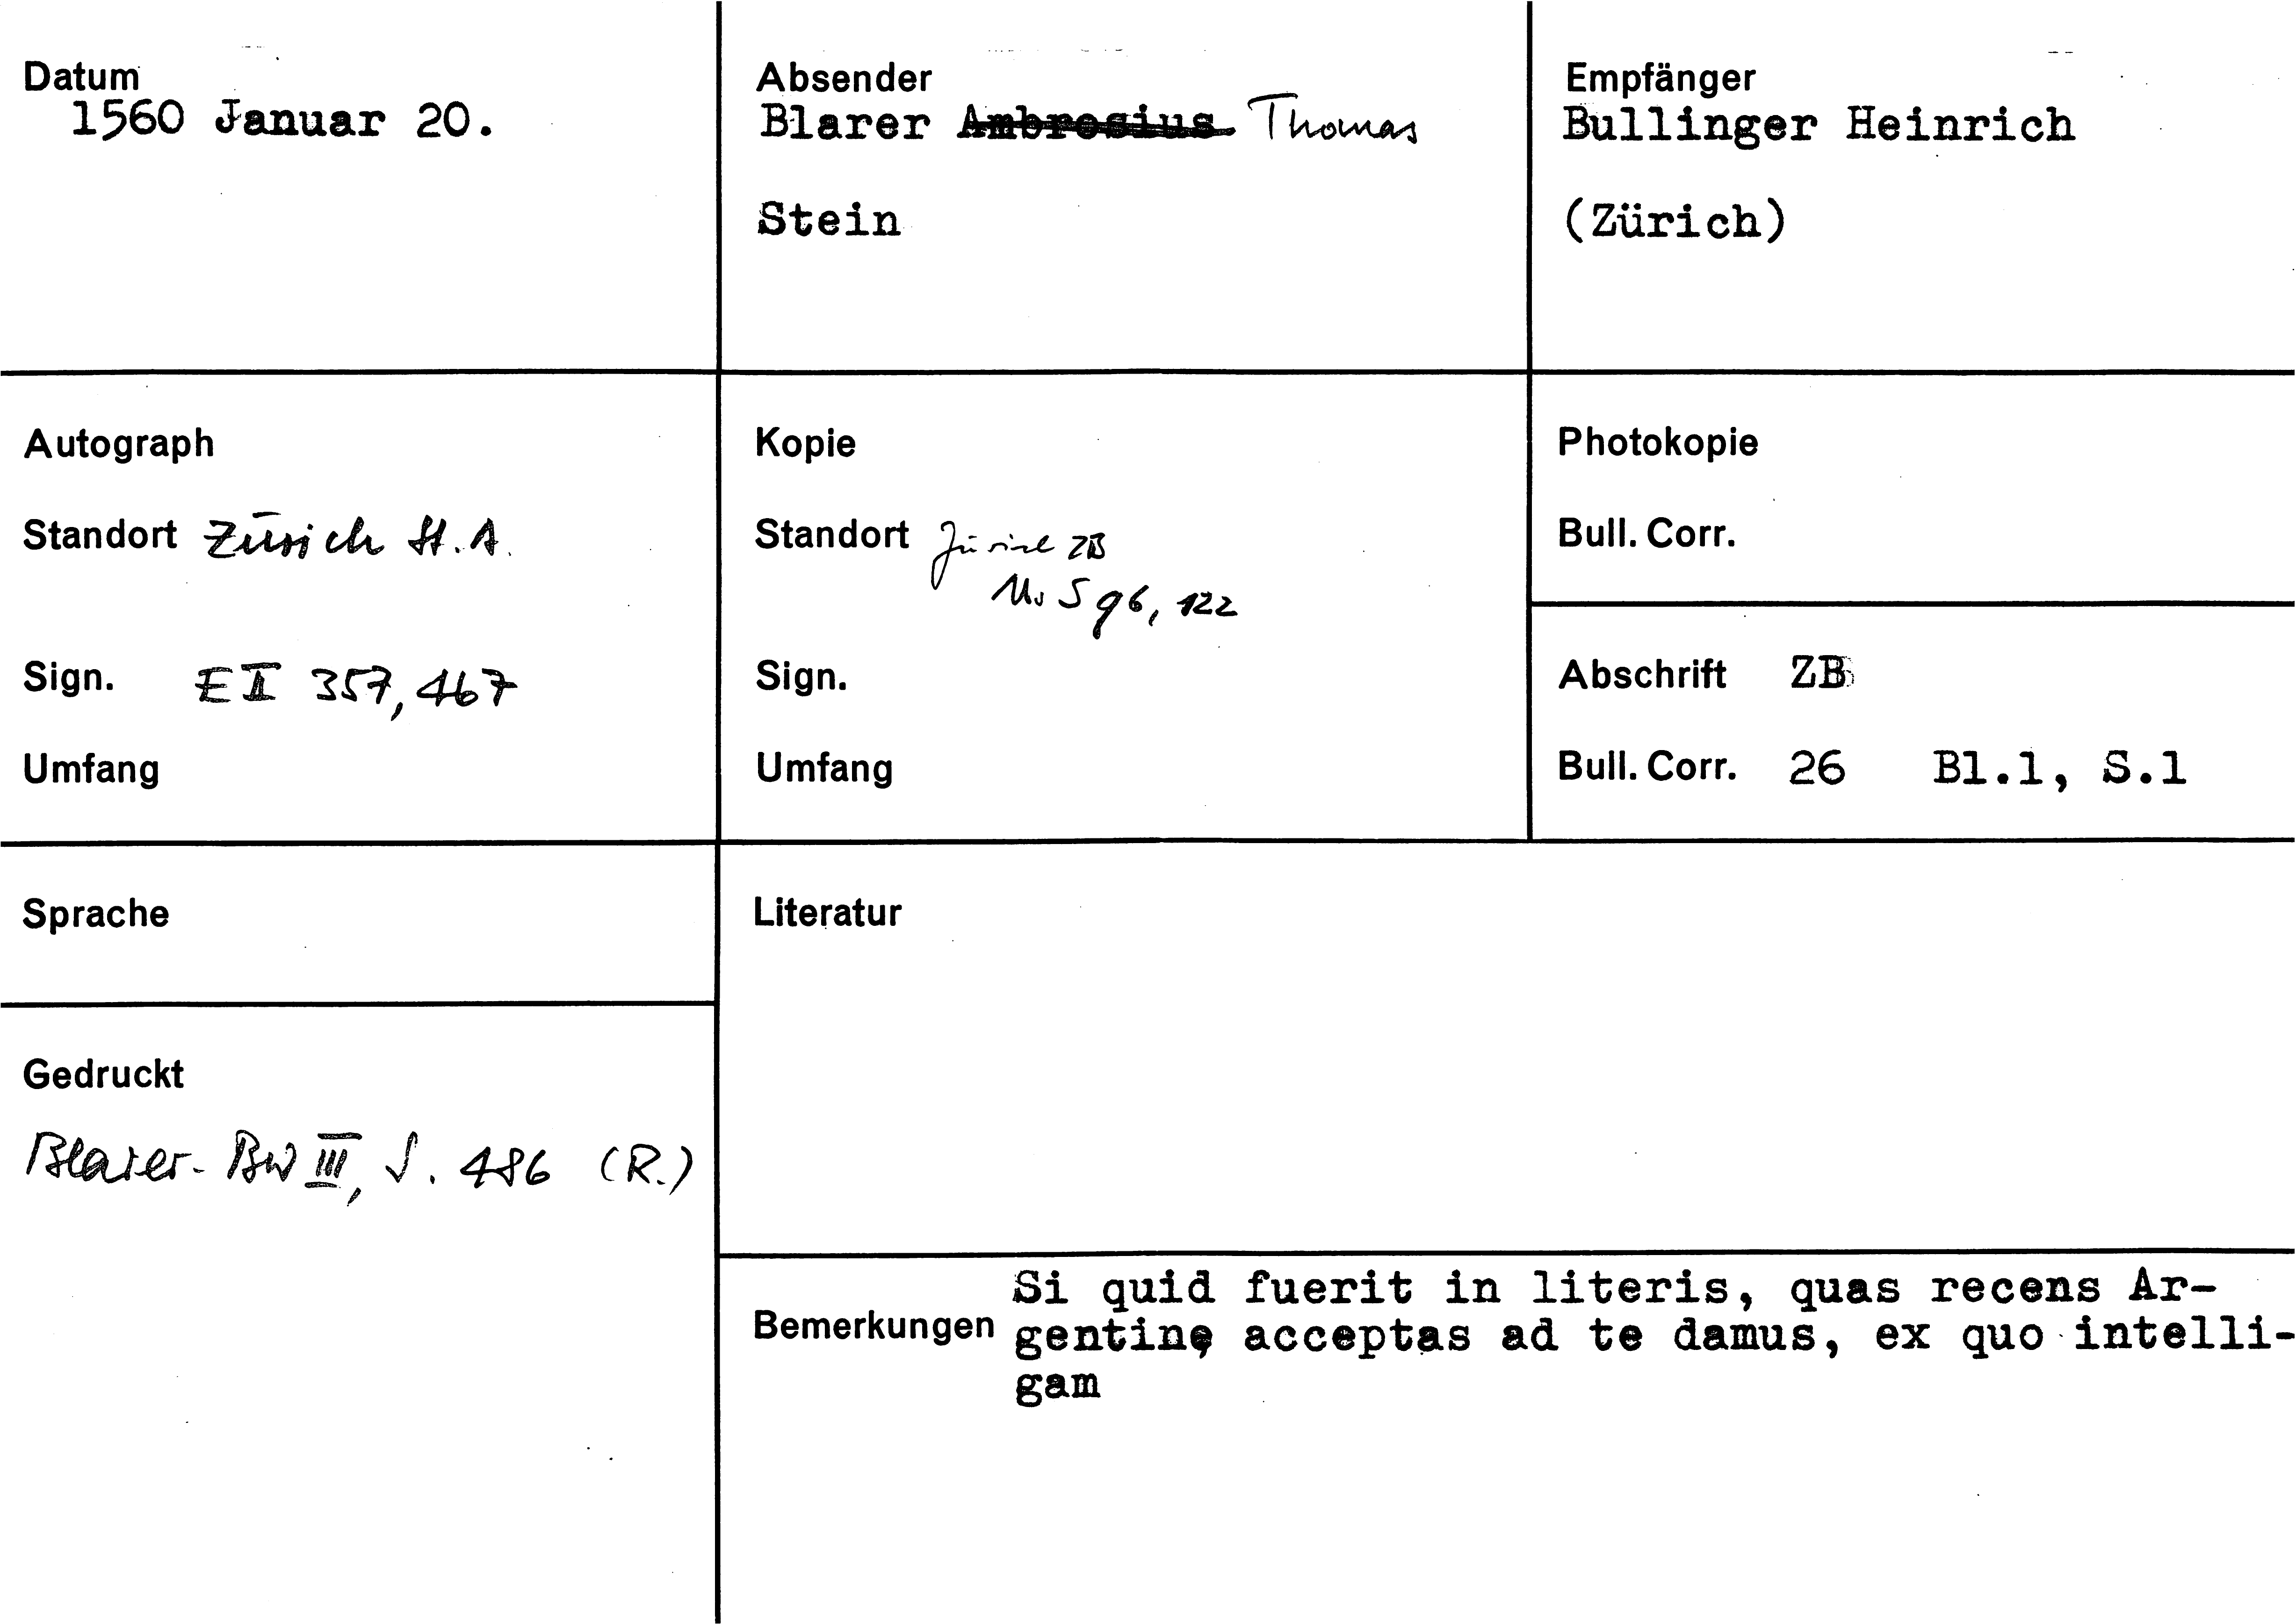 Datum
1560 Januar 20.
Absender
Blarer Ambrosius Thomas
Stein
Empfänger
Bullinger Heinrich
(Zürich)
Autograph
Standort Zürich St.A.
Sign. E II 357, 467
Umfang
Kopie
Standort Zürich ZB
Ms S 96, 122
Sign.
Umfang
Photokopie
Bull. Corr.
Abschrift ZB
Bull. Corr. 26 Bl.1, S.1
Sprache
Literatur
Gedruckt
Blarer-BW III, S. 486 (R.)
Bemerkungen
Si quid fuerit in literis, quas recens Ar-
gentinę acceptas ad te damus, ex quo intelli-
gam